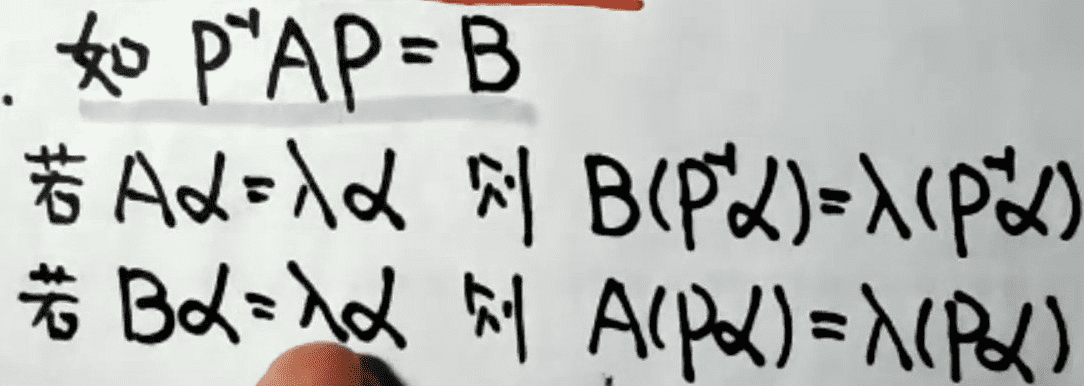 如 P⁻¹AP = B
若 Aα = λα 则 B(P⁻¹α) = λ(P⁻¹α)
若 Bα = λα 则 A(Pα) = λ(Pα)